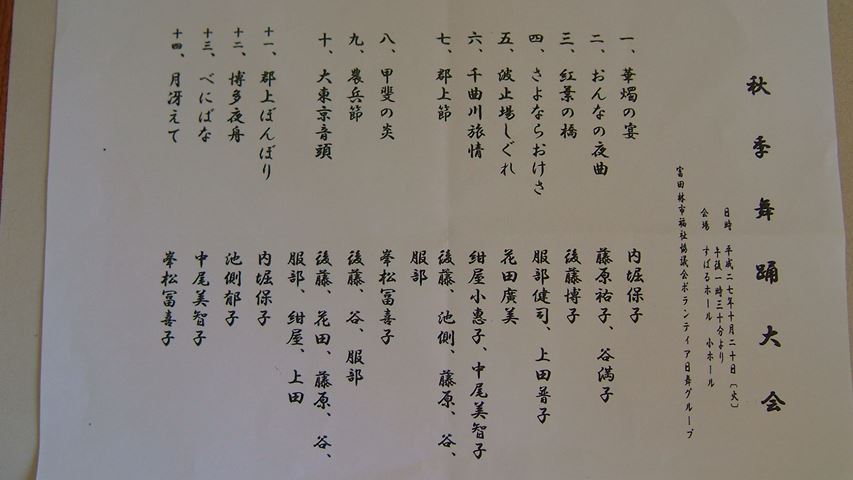 秋季舞踊大会
日時 平成二七年十月二十日（火）
午後一時三十分より
会場 すばるホール 小ホール
富田林市福祉協議会ボランティア日舞グループ
一、華燭の宴 内堀保子
二、おんなの夜曲 藤原祐子、谷満子
三、紅葉の橋 後藤博子
四、さよならおけさ 服部健司、上田普子
五、波止場しぐれ 花田廣美
六、千曲川旅情 紺屋小惠子、中尾美智子
七、郡上節 後藤、池側、藤原、谷、
服部
八、甲斐の炎 峯松冨喜子
九、農兵節 後藤、谷、服部
十、大東京音頭 後藤、花田、藤原、谷、
服部、紺屋、上田
十一、郡上ぼんぼり 内堀保子
十二、博多夜舟 池側郁子
十三、べにばな 中尾美智子
十四、月冴えて 峯松冨喜子